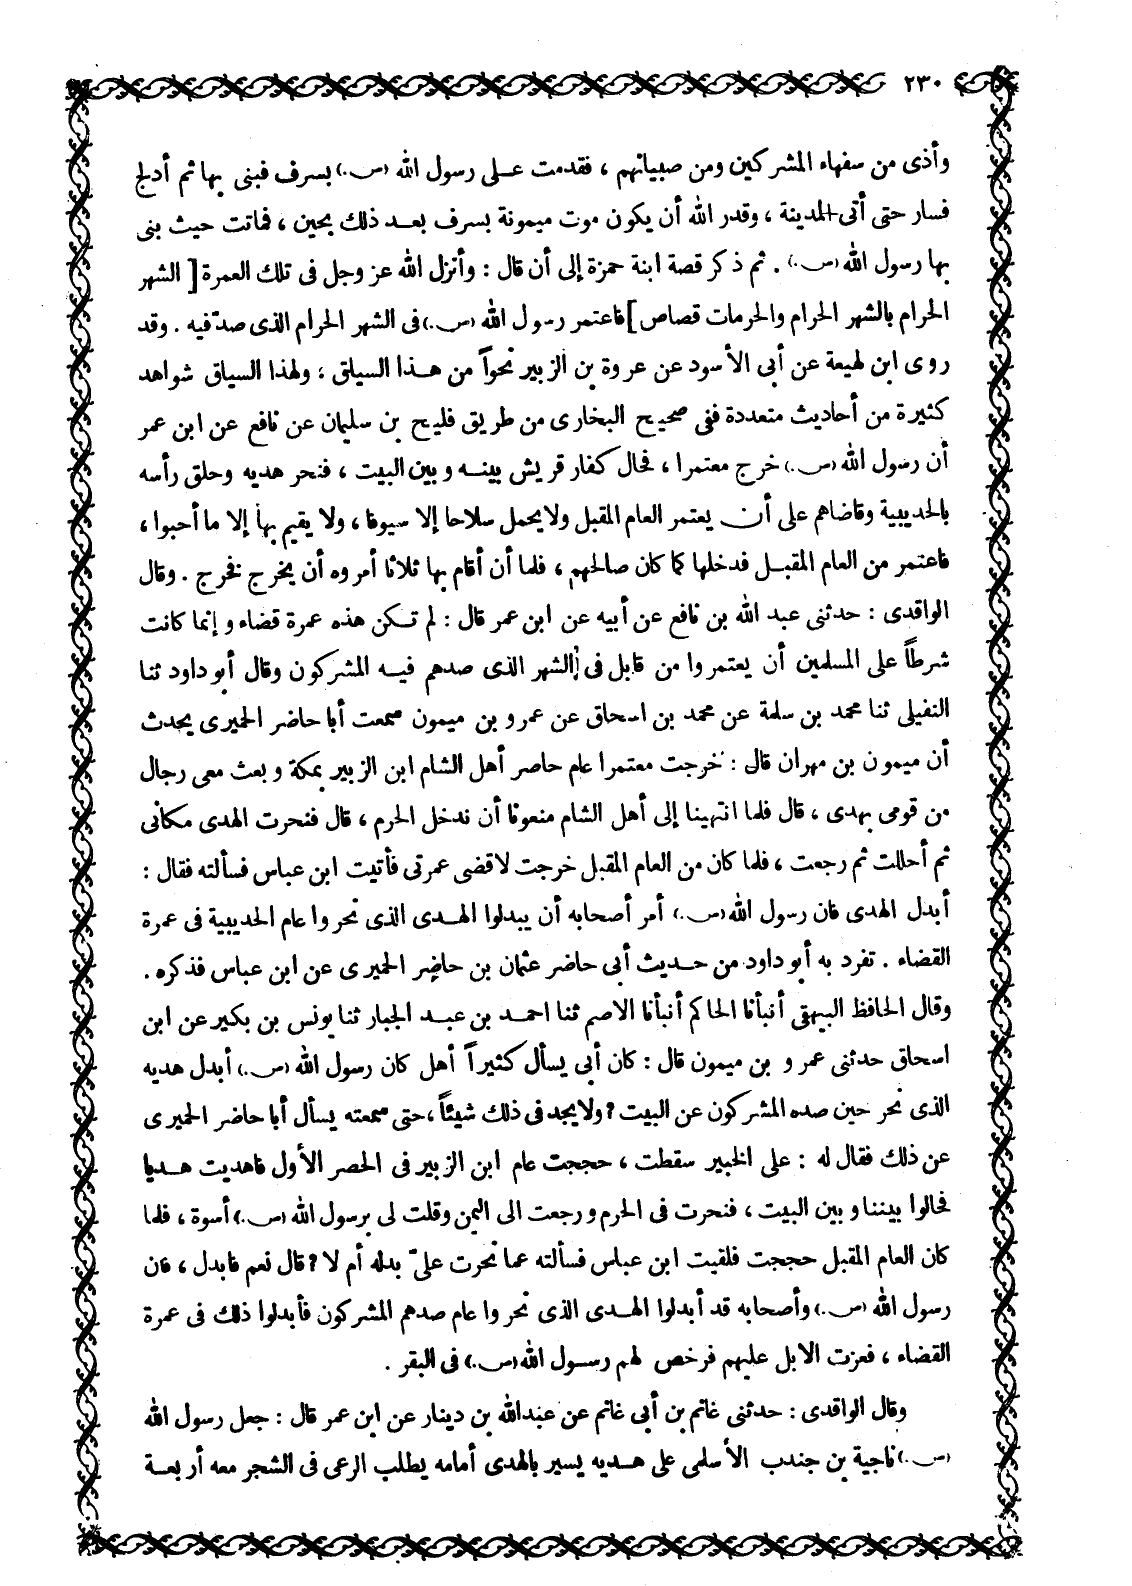 ٢٣٠
وأذى من سفهاء المشركين ومن صبيانهم ، فقدمت على رسول الله (ص.) بسرف فبنى بها ثم أدلج
فسار حتى أتى المدينة ، وقدر الله أن يكون موت ميمونة بسرف بعد ذلك بحين ، فماتت حيث بنى
بها رسول الله (ص.) . ثم ذكر قصة ابنة حمزة إلى أن قال : وأنزل الله عز وجل فى تلك العمرة [ الشهر
الحرام بالشهر الحرام والحرمات قصاص ] فاعتمر رسول الله (ص.) فى الشهر الحرام الذى صدّ فيه . وقد
روى ابن لهيعة عن أبى الأسود عن عروة بن الزبير نحواً من هذا السياق ، ولهذا السياق شواهد
كثيرة من أحاديث متعددة ففى صحيح البخارى من طريق فليح بن سليمان عن نافع عن ابن عمر
أن رسول الله (ص.) خرج معتمرا ، فحال كفار قريش بينه وبين البيت ، فنحر هديه وحلق رأسه
بالحديبية وقاضاهم على أن يعتمر العام المقبل ولا يحمل سلاحا إلا سيوفا ، ولا يقيم بها إلا ما أحبوا ،
فاعتمر من العام المقبل فدخلها كما كان صالحهم ، فلما أن أقام بها ثلاثا أمروه أن يخرج فخرج . وقال
الواقدى : حدثنى عبد الله بن نافع عن أبيه عن ابن عمر قال : لم تكن هذه عمرة قضاء و إنما كانت
شرطاً على المسلمين أن يعتمروا من قابل فى الشهر الذى صدهم فيه المشركون وقال أبو داود ثنا
النفيلى ثنا محمد بن سلمة عن محمد بن اسحاق عن عمرو بن ميمون سمعت أبا حاضر الحميرى يحدث
أن ميمون بن مهران قال : خرجت معتمرا عام حاصر أهل الشام ابن الزبير بمكة وبعث معى رجال
من قومى بهدى ، قال فلما انتهينا إلى أهل الشام منعونا أن ندخل الحرم ، قال فنحرت الهدى مكانى
ثم أحللت ثم رجعت ، فلما كان من العام المقبل خرجت لاقضى عمرتى فأتيت ابن عباس فسألته فقال :
أبدل الهدى فان رسول الله (ص.) أمر أصحابه أن يبدلوا الهدى الذى نحروا عام الحديبية فى عمرة
القضاء . تفرد به أبو داود من حديث أبى حاضر عثمان بن حاضر الحميرى عن ابن عباس فذكره .
وقال الحافظ البيهقى أنبأنا الحاكم أنبأنا الاصم ثنا احمد بن عبد الجبار ثنا يونس بن بكير عن ابن
اسحاق حدثنى عمرو بن ميمون قال : كان أبى يسأل كثيراً أهل كان رسول الله (ص.) أبدل هديه
الذى نحر حين صده المشركون عن البيت ؟ ولا يجد فى ذلك شيئاً ، حتى سمعته يسأل أبا حاضر الحميرى
عن ذلك فقال له : على الخبير سقطت ، حججت عام ابن الزبير فى الحصر الأول فاهديت هديا
فحالوا بيننا وبين البيت ، فنحرت فى الحرم ورجعت الى اليمن وقلت لى برسول الله (ص.) أسوة ، فلما
كان العام المقبل حججت فلقيت ابن عباس فسألته عما نحرت علىّ بدله أم لا ؟ قال نعم فابدل ، فان
رسول الله (ص.) وأصحابه قد أبدلوا الهدى الذى نحروا عام صدهم المشركون فأبدلوا ذلك فى عمرة
القضاء ، فعزت الابل عليهم فرخص لهم رسول الله (ص.) فى البقر .
وقال الواقدى : حدثنى غانم بن أبى غانم عن عبدالله بن دينار عن ابن عمر قال : جعل رسول الله
(ص.) ناجية بن جندب الأسلمى على هديه يسير بالهدى أمامه يطلب الرعى فى الشجر معه أربعة